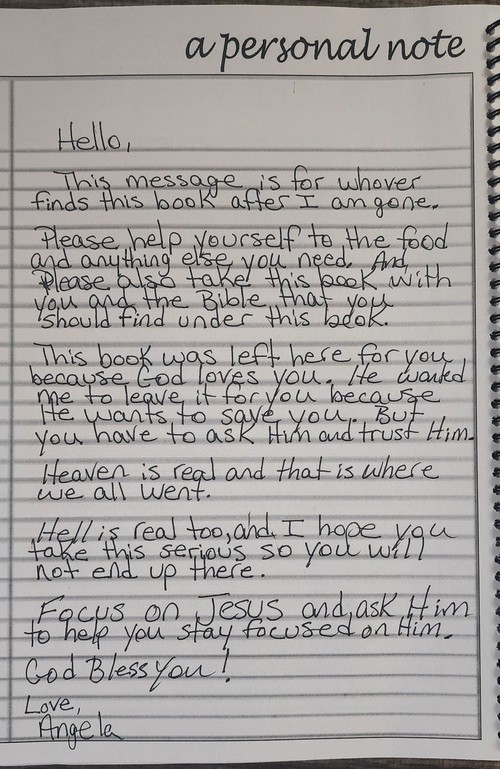 a personal note
Hello,
This message is for whover
finds this book after I am gone.
Please help yourself to the food
and anything else you need. And
Please also take this book with
you and the Bible that you
should find under this book.
This book was left here for you,
because God loves you. He wanted
me to leave it for you because
He wants to save you. But
you have to ask Him and trust Him.
Heaven is real and that is where
we all went.
Hell is real too, and I hope you
take this serious so you will
not end up there.
Focus on Jesus and ask Him
to help you stay focused on Him.
God Bless You!
Love,
Angela